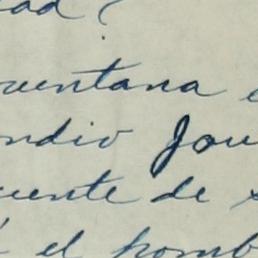 dad?
ventana
ndió Jou
uente de s
é el homb